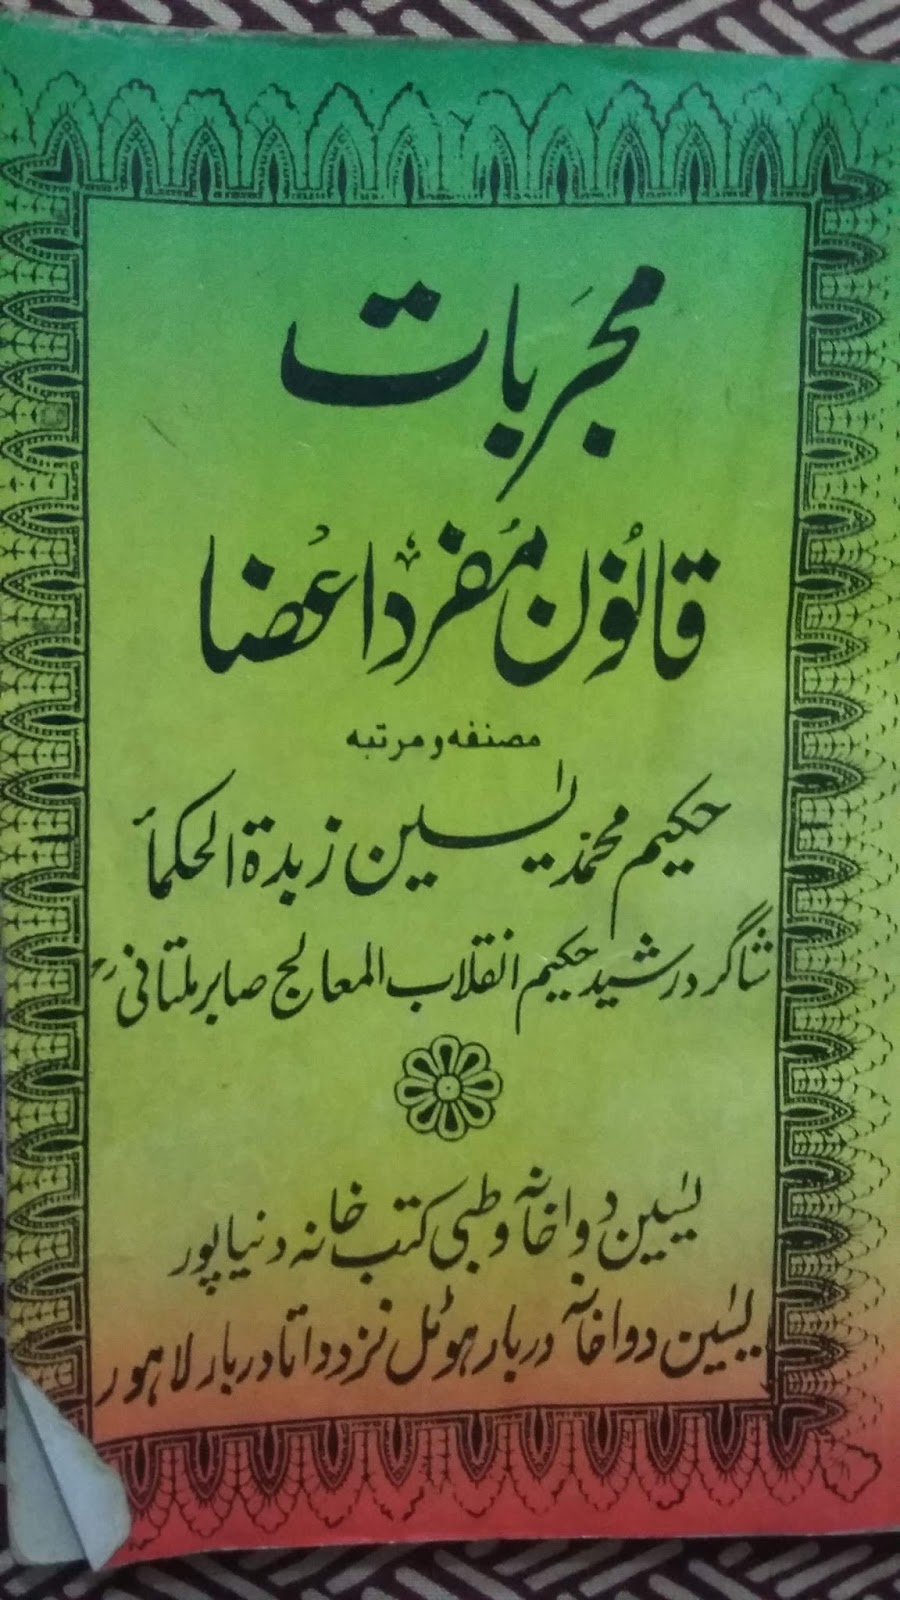 مجربات
قانون مفرد اعضا
مصنفہ و مرتبہ
حکیم محمد یٰسین زبدۃ الحکمأ
شاگرد رشید حکیم انقلاب المعالج صابر ملتانیؒ
یٰسین دواخانہ و طبی کتب خانہ دنیاپور
یٰسین دواخانہ دربار ہوٹل نزد داتا دربار لاہور